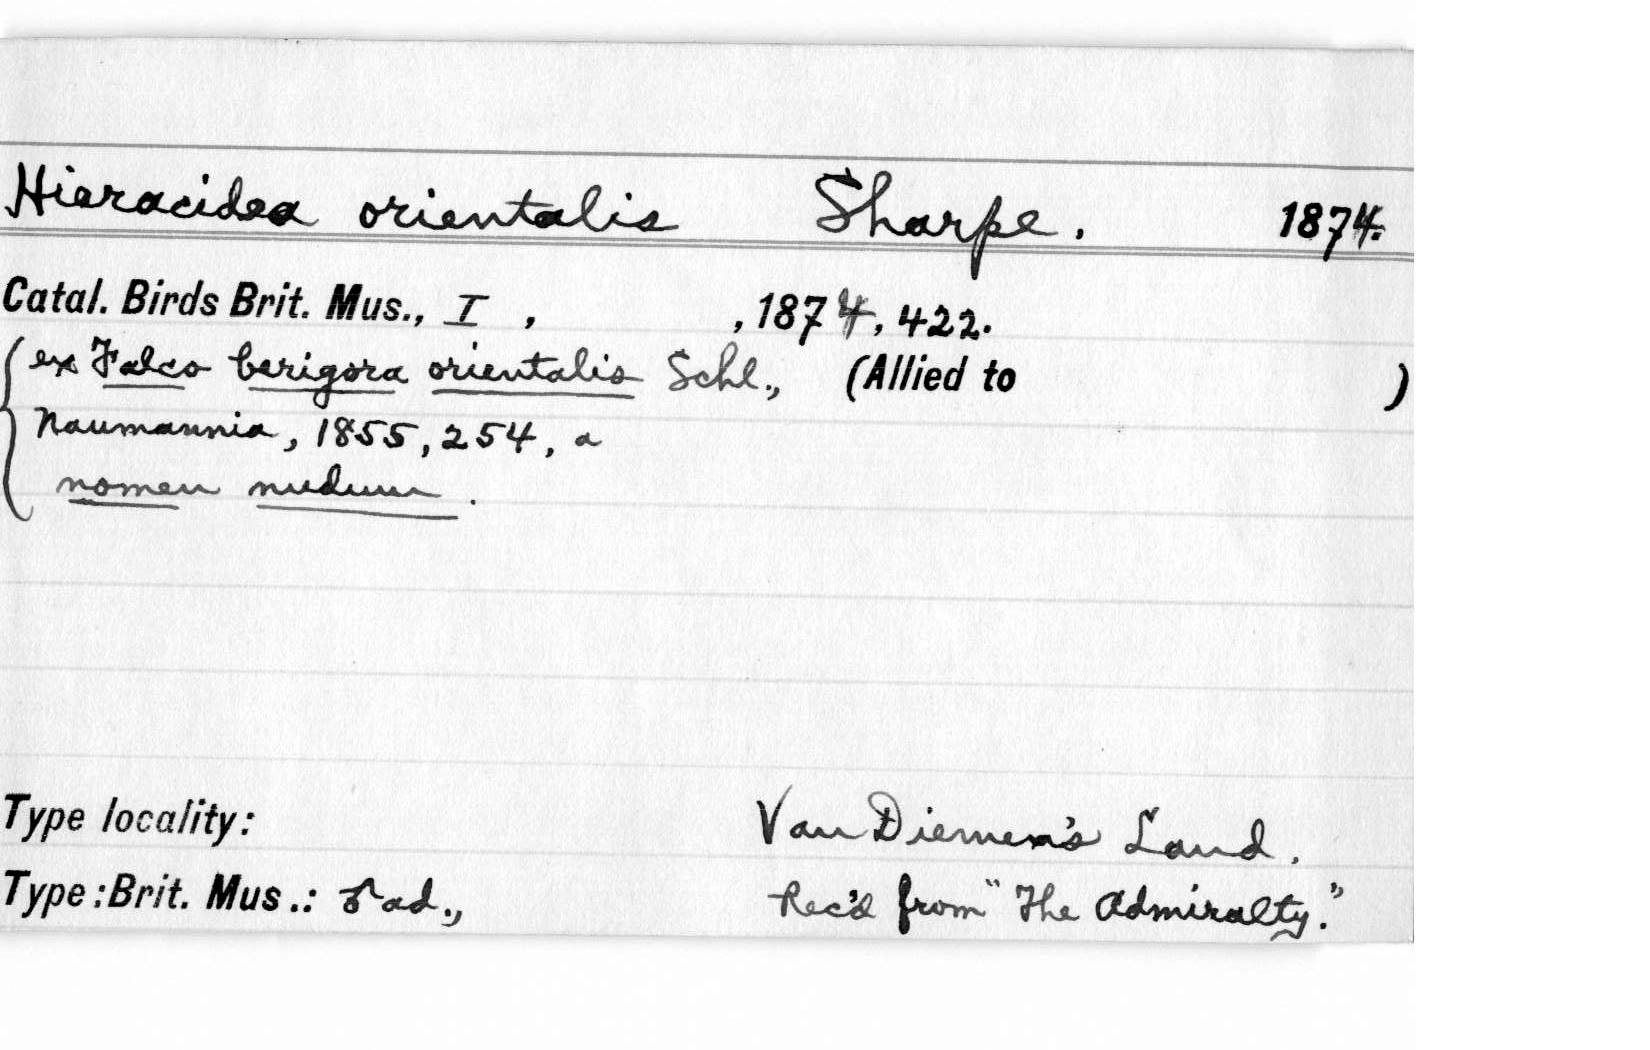 Hieracidea orientalis Sharpe. 1874.
Catal. Birds Brit. Mus., I , , 1874, 422.
ex Falco berigora orientalis Schl., (Allied to )
Naumannia, 1855, 254, a
nomen nudum.
Type locality: Van Diemen's Land.
Type: Brit. Mus.: ♂ ad., Rec'd from "The Admiralty."